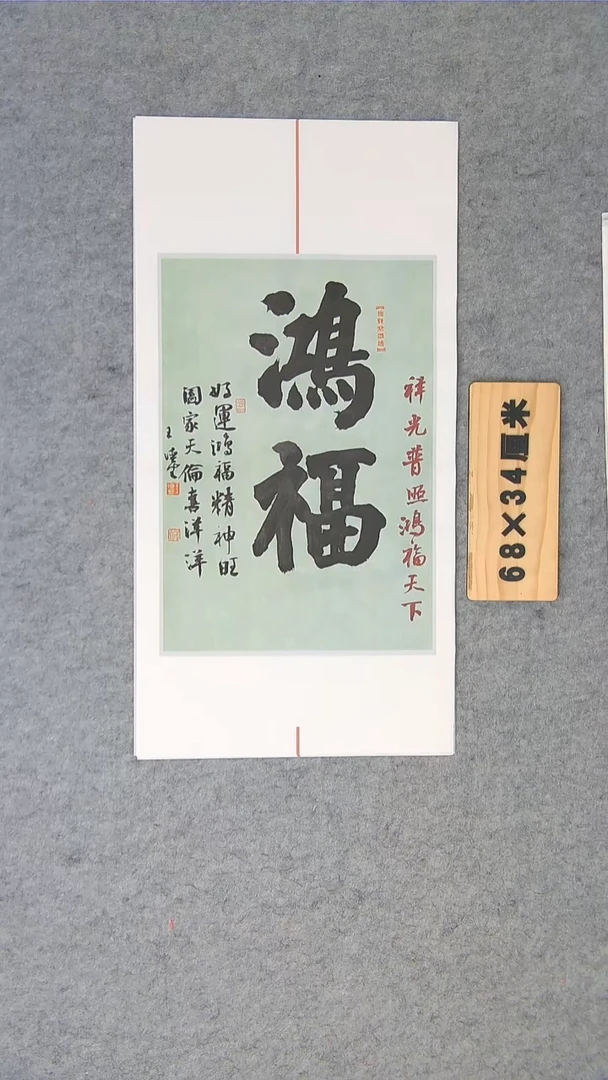 祥光普照鴻福天下
鴻福
好運鴻福精神旺
闔家天倫喜洋洋
68×34厘米